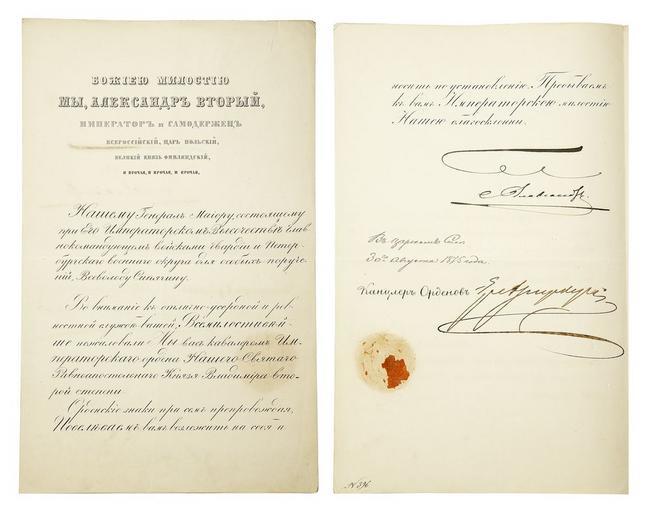 БОЖІЕЮ МИЛОСТІЮ
МЫ, АЛЕКСАНДРЪ ВТОРЫЙ,
ИМПЕРАТОРЪ И САМОДЕРЖЕЦЪ
ВСЕРОССІЙСКІЙ, ЦАРЬ ПОЛЬСКІЙ,
ВЕЛИКІЙ КНЯЗЬ ФИНЛЯНДСКІЙ,
И ПРОЧАЯ, И ПРОЧАЯ, И ПРОЧАЯ.
Нашему Генералъ Маіору, состоящему
при Его Императорскомъ Высочествѣ Глав-
нокомандующемъ войсками гвардіи и Петер-
бургскаго военнаго округа для особыхъ поруче-
ній, Всеволоду Сипягину.
Во вниманіе къ отлично-усердной и рев-
ностной службѣ вашей, Всемилостивѣй-
ше пожаловали Мы васъ кавалеромъ Им-
ператорскаго ордена Нашего Святаго
Равноапостольнаго Князя Владиміра вто-
рой степени
Орденскіе знаки при семъ препровождая,
Повелѣваемъ вамъ возложить на себя и
носить по установленію. Пребываемъ
къ вамъ Императорскою милостію
Нашею благосклонны.
Въ Царскомъ Селѣ
30го Августа 1875 года.
Канцлеръ Орденовъ
№ 596